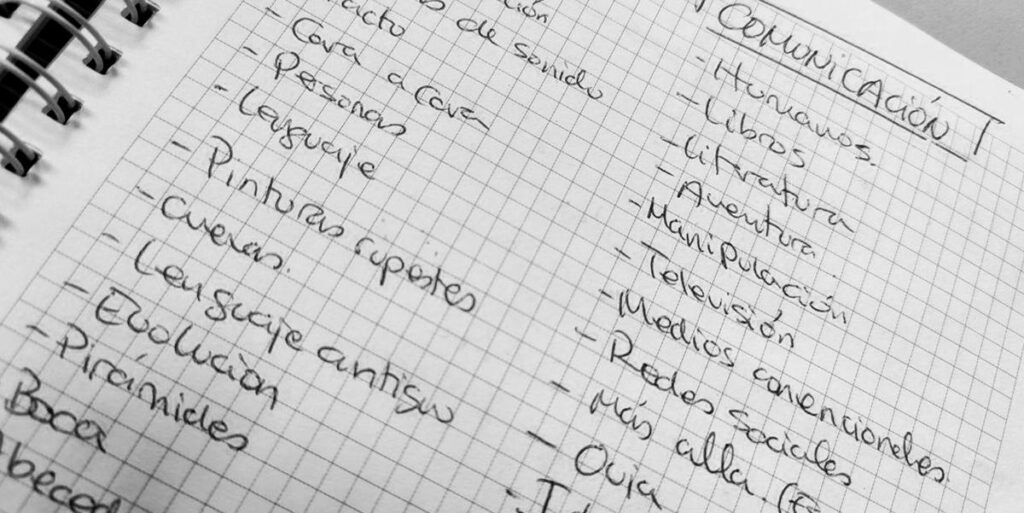 de sonido
- Cara a Cara
- Personas
- Lenguaje
- Pinturas rupestes
- Cuevas.
- Lenguaje antiguo
- Evolución
- Pirámides
Boca
COMUNICACIÓN
- Humanos.
- Libros
- Literatura
- Aventura.
- Manipulación
- Televisión
- Medios convencionales.
- Redes sociales
- Más alla.
- Ouia